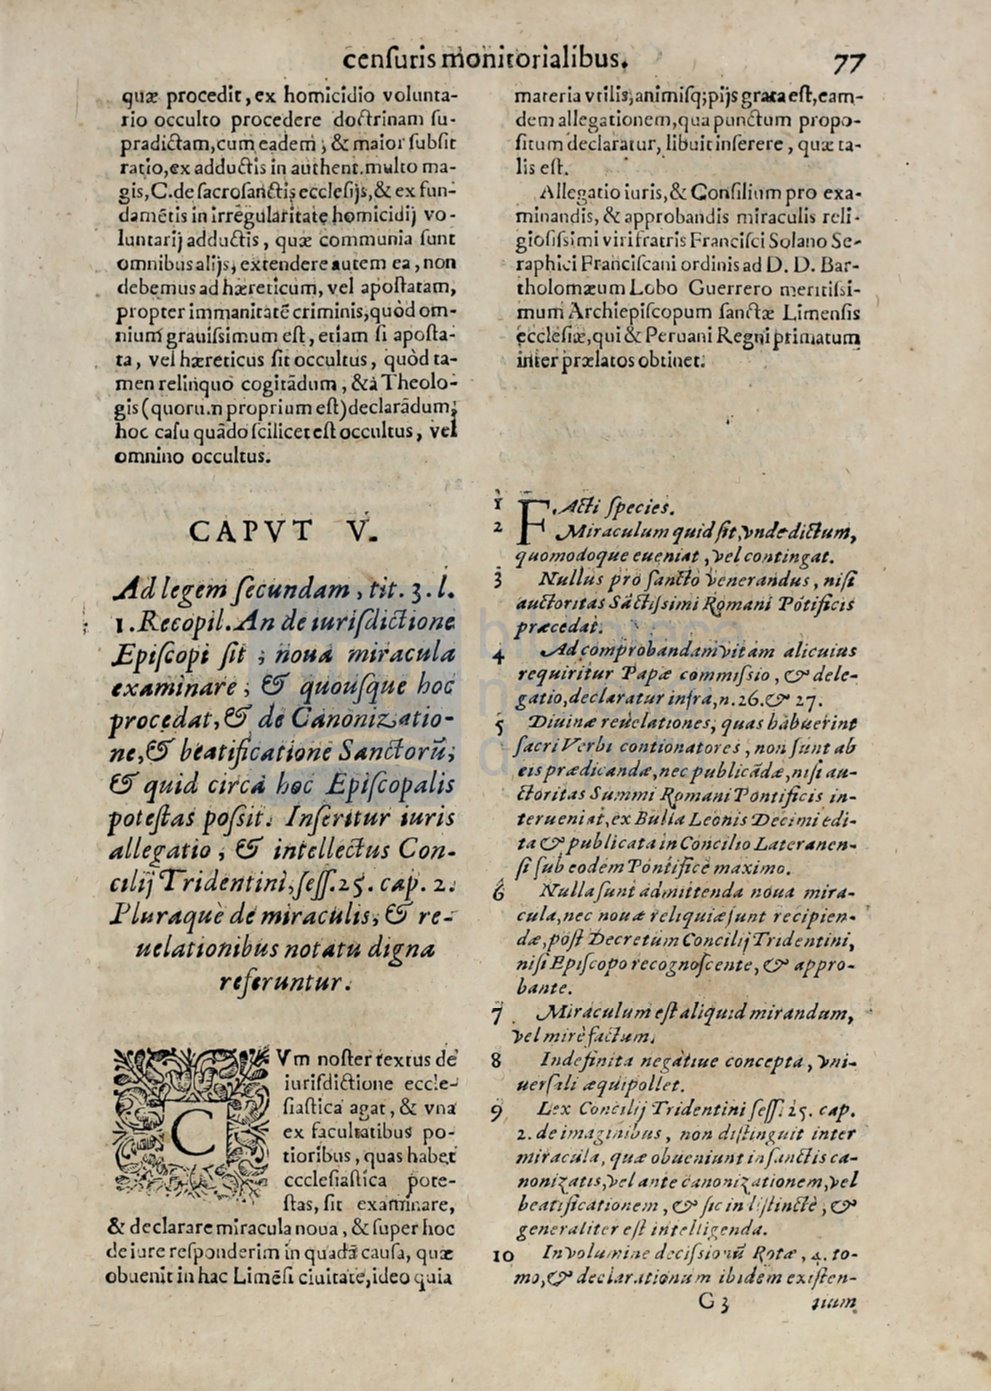 cenſuris monitorialibus. 77
quæ procedit, ex homicidio volunta-
rio occulto procedere doctrinam ſu-
pradictam, cum eadem, & maior ſubſit
ratio, ex adductis in authent. multo ma-
gis, C. de ſacroſanctis eccleſijs, & ex fun-
damẽtis in irregularitate homicidij vo-
luntarij adductis, quæ communia ſunt
omnibus alijs, extendere autem ea, non
debemus ad hæreticum, vel apoſtatam,
propter immanitatẽ criminis, quòd om-
nium grauiſsimum eſt, etiam ſi apoſta-
ta, vel hæreticus ſit occultus, quòd ta-
men relinquo cogitãdum, & à Theolo-
gis (quorum proprium eſt) declarãdum,
hoc caſu quãdo ſcilicet eſt occultus, vel
omnino occultus.
CAPVT V.
Ad legem ſecundam, tit. 3. l.
1. Recopil. An de iuriſdictione
Epiſcopi ſit, noua miracula
examinare, & quouſque hoc
procedat, & de Canonizatio-
ne, & beatificatione Sanctorũ,
& quid circa hoc Epiſcopalis
poteſtas poſsit. Inſeritur iuris
allegatio, & intellectus Con-
cilij Tridentini, ſeſſ. 25. cap. 2.
Pluraque de miraculis, & re-
uelationibus notatu digna
referuntur.
CVm noſter textus de
iuriſdictione eccle-
ſiaſtica agat, & vna
ex facultatibus po-
tioribus, quas habet
eccleſiaſtica pote-
ſtas, ſit examinare,
& declarare miracula noua, & ſuper hoc
de iure reſponderim in quadã cauſa, quæ
obuenit in hac Limẽſi ciuitate, ideo quia
materia vtilis, animiſq; pijs grata eſt, eam-
dem allegationem, qua punctum propo-
ſitum declaratur, libuit inſerere, quæ ta-
lis eſt.
Allegatio iuris, & Conſilium pro exa-
minandis, & approbandis miraculis reli-
gioſiſsimi viri fratris Franciſci Solano Se-
raphici Franciſcani ordinis ad D. D. Bar-
tholomæum Lobo Guerrero meritiſsi-
mum Archiepiſcopum ſanctæ Limenſis
eccleſiæ, qui & Peruani Regni primatum
inter prælatos obtinet.
1 FActi ſpecies.
2 Miraculum quid ſit, vnde dictum,
quomodoque eueniat, vel contingat.
3 Nullus pro ſancto venerandus, niſi
auctoritas Sãctiſsimi Romani Põtificis
præcedat.
4 Ad comprobandam vitam alicuius
requiritur Papæ commiſsio, & dele-
gatio, declaratur infra, n. 26. & 27.
5 Diuinæ reuelationes, quas habuerint
ſacri Verbi contionatores, non ſunt ab
eis prædicandæ, nec publicãdæ, niſi au-
ctoritas Summi Romani Pontificis in-
terueniat, ex Bulla Leonis Decimi edi-
ta & publicata in Concilio Lateranen-
ſi ſub eodem Põtifice maximo.
6 Nulla ſunt admittenda noua mira-
cula, nec nouæ reliquiæ ſunt recipien-
dæ, poſt Decretum Concilij Tridentini,
niſi Epiſcopo recognoſcente, & appro-
bante.
7 Miraculum eſt aliquid mirandum,
vel mirè factum.
8 Indefinita negatiue concepta, vni-
uerſali æquipollet.
9 Lex Concilij Tridentini ſeſſ. 25. cap.
2. de imaginibus, non diſtinguit inter
miracula, quæ obueniunt in ſanctis ca-
nonizatis, vel ante canonizationem, vel
beatificationem, & ſic in diſtinctè, &
generaliter eſt intelligenda.
10 In volumine deciſsionũ Rotæ, 4. to-
mo, & declarationum ibidem exiſten-
G 3 tium